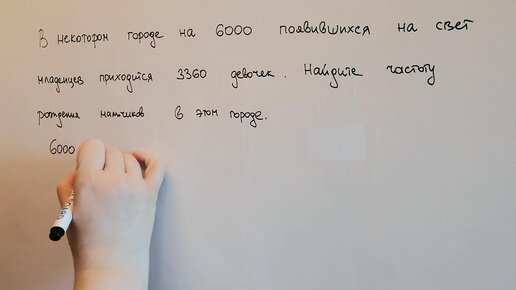 В некотором городе на 6000 появившихся на свет
младенцев приходится 3360 девочек. Найдите частоту
рождения мальчиков в этом городе.
6000